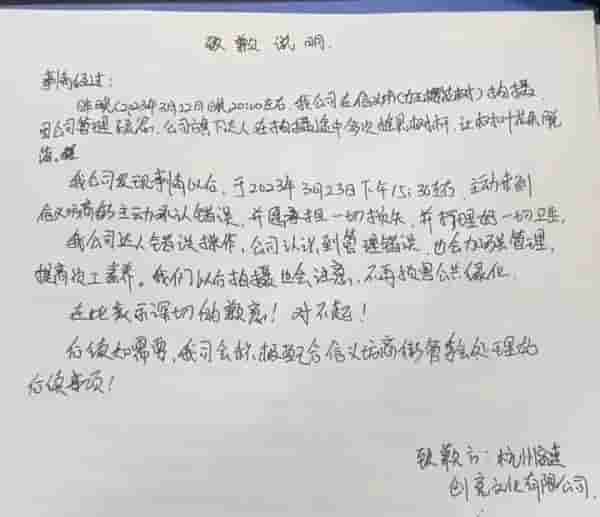 致歉说明
事情经过:
昨晚(2023年3月22日晚20:00左右,我公司在信义坊()拍摄
因公司管理疏忽,公司旗下达人在拍摄途中多次摇晃树杆,让树叶花朵脱
落。
我公司发现事情以后,于2023年3月23日下午15:30左右 主动来到
信义坊商街主动承认错误,并愿承担一切损失,并打理好一切卫生。
我公司达人错误操作,公司认识到管理错误,也会加强管理,
提高员工素养。我们以后拍摄也会注意,不再损害公共绿化。
在此表示深切的歉意!对不起!
后续如需要,我司会积极配合信义坊商街管委会处理的
后续事项!
致歉方:杭州
创意文化有限公司.